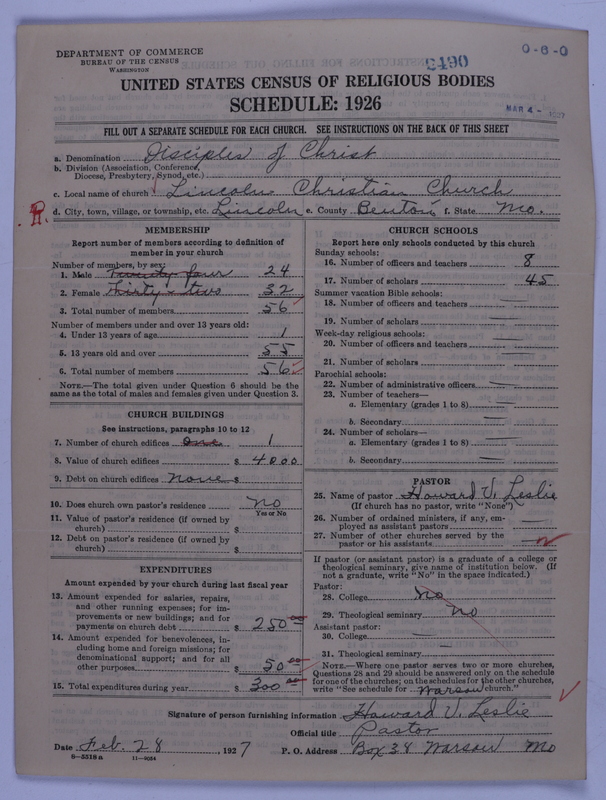 DEPARTMENT OF COMMERCE
BUREAU OF THE CENSUS
WASHINGTON
2490
0-6-0
UNITED STATES CENSUS OF RELIGIOUS BODIES
SCHEDULE: 1926
MAR 4 - 1927
FILL OUT A SEPARATE SCHEDULE FOR EACH CHURCH. SEE INSTRUCTIONS ON THE BACK OF THIS SHEET
a. Denomination Disciples of Christ
b. Division (Association, Conference, Diocese, Presbytery, Synod, etc.)
c. Local name of church Lincoln Christian Church
R. d. City, town, village, or township, etc. Lincoln e. County Benton f. State Mo.
MEMBERSHIP
Report number of members according to definition of member in your church
Number of members, by sex:
1. Male Twenty four 24
2. Female Thirty-two 32
3. Total number of members 56
Number of members under and over 13 years old:
4. Under 13 years of age 1
5. 13 years old and over 55
6. Total number of members 56
NOTE.—The total given under Question 6 should be the same as the total of males and females given under Question 3.
CHURCH BUILDINGS
See instructions, paragraphs 10 to 12
7. Number of church edifices One 1
8. Value of church edifices $ 4000
9. Debt on church edifices None $
10. Does church own pastor's residence No
Yes or No
11. Value of pastor's residence (if owned by church) $
12. Debt on pastor's residence (if owned by church) $
EXPENDITURES
Amount expended by your church during last fiscal year
13. Amount expended for salaries, repairs, and other running expenses; for improvements or new buildings; and for payments on church debt $ 250 00
14. Amount expended for benevolences, including home and foreign missions; for denominational support; and for all other purposes $ 50 00
15. Total expenditures during year $ 300 00
CHURCH SCHOOLS
Report here only schools conducted by this church
Sunday schools:
16. Number of officers and teachers 8
17. Number of scholars 45
Summer vacation Bible schools:
18. Number of officers and teachers —
19. Number of scholars —
Week-day religious schools:
20. Number of officers and teachers —
21. Number of scholars —
Parochial schools:
22. Number of administrative officers —
23. Number of teachers—
a. Elementary (grades 1 to 8) —
b. Secondary —
24. Number of scholars—
a. Elementary (grades 1 to 8) —
b. Secondary —
PASTOR
25. Name of pastor Howard V. Leslie
(If church has no pastor, write "None")
26. Number of ordained ministers, if any, employed as assistant pastors —
27. Number of other churches served by the pastor or his assistants
If pastor (or assistant pastor) is a graduate of a college or theological seminary, give name of institution below. (If not a graduate, write "No" in the space indicated.)
Pastor:
28. College No
29. Theological seminary No
Assistant pastor:
30. College —
31. Theological seminary —
NOTE.—Where one pastor serves two or more churches, Questions 28 and 29 should be answered only on the schedule for one of the churches; on the schedules for the other churches, write "See schedule for Warsaw church."
Signature of person furnishing information Howard V. Leslie
Official title Pastor
Date Feb. 28, 1927 P. O. Address Box 38 Warsaw Mo
8—5518 a 11—9054